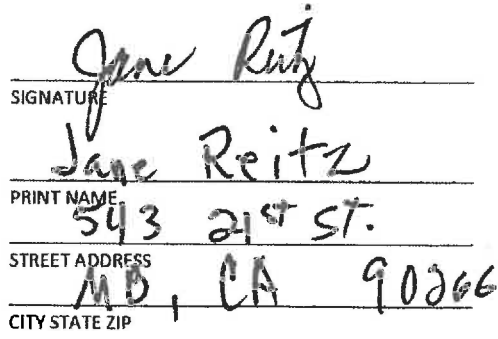 Jane Reitz
SIGNATURE
Jane Reitz
PRINT NAME
543 21st ST.
STREET ADDRESS
MB, CA 90266
CITY STATE ZIP